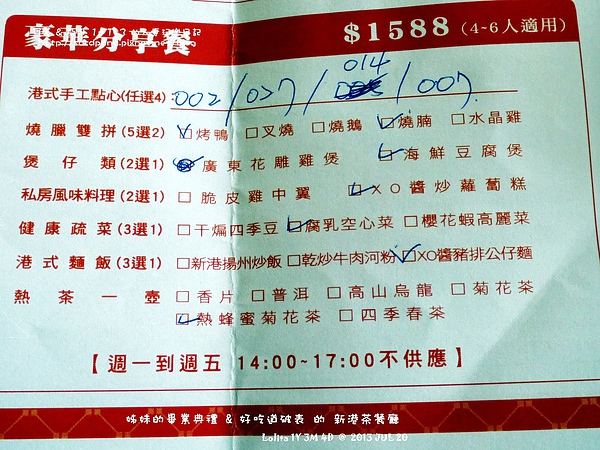 豪華分享餐 $1588 (4~6人適用)
014
港式手工點心(任選4) 002/027/ /007
燒臘雙拼(5選2) □烤鴨 □叉燒 □燒鵝 □燒腩 □水晶雞
煲仔類(2選1) 廣東花雕雞煲 □海鮮豆腐煲
私房風味料理(2選1) □脆皮雞中翼 □XO醬炒蘿蔔糕
健康蔬菜(3選1) □干煸四季豆 □腐乳空心菜 □櫻花蝦高麗菜
港式麵飯(3選1) □新港揚州炒飯 □乾炒牛肉河粉 □XO醬豬排公仔麵
熱茶一壺 □香片 □普洱 □高山烏龍 □菊花茶
□熱蜂蜜菊花茶 □四季春茶
【週一到週五 14:00~17:00不供應】
姊妹的畢業典禮 & 好吃道破表 的 新港茶餐廳
Lolita 1Y 3M 4D @ 2013 JUL 20